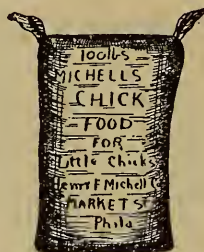 100lbs
MICHELLS
CHICK
FOOD
FOR
Little Chicks
Henry F Michell C
MARKET ST
Phila